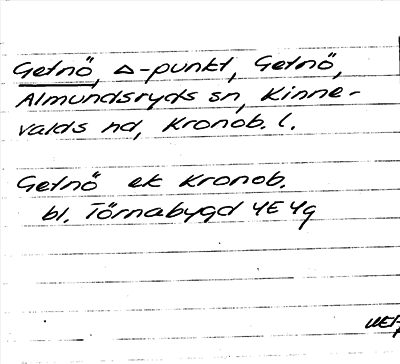 Getnö, △-punkt, Getnö,
Almundsryds sn, Kinne-
valds hd, Kronob. l.
Getnö ek Kronob.
bl. Törnabygd 4E4g